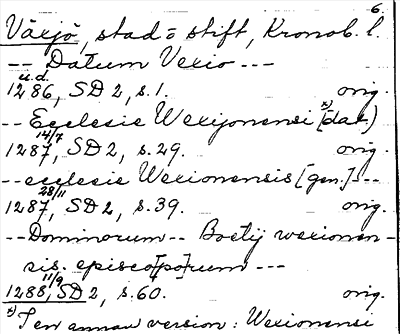 6.
Växjö, stad o stift, Kronob. l.
-- Datum Vexio ---
u.d.
1286, SD 2, s. 1. orig.
-- Ecclesie Wexijonensi x) [dat)
14/7
1287, SD 2, s. 29. orig.
-- ecclesie Wexionensis [gen.] --
28/11
1287, SD 2, s. 39. orig.
-- Dominorum -- Boetij wexionen-
sis. episco[po]rum ---
11/9
1288, SD 2, s. 60. orig.
x) I en annan version: Wexionensi